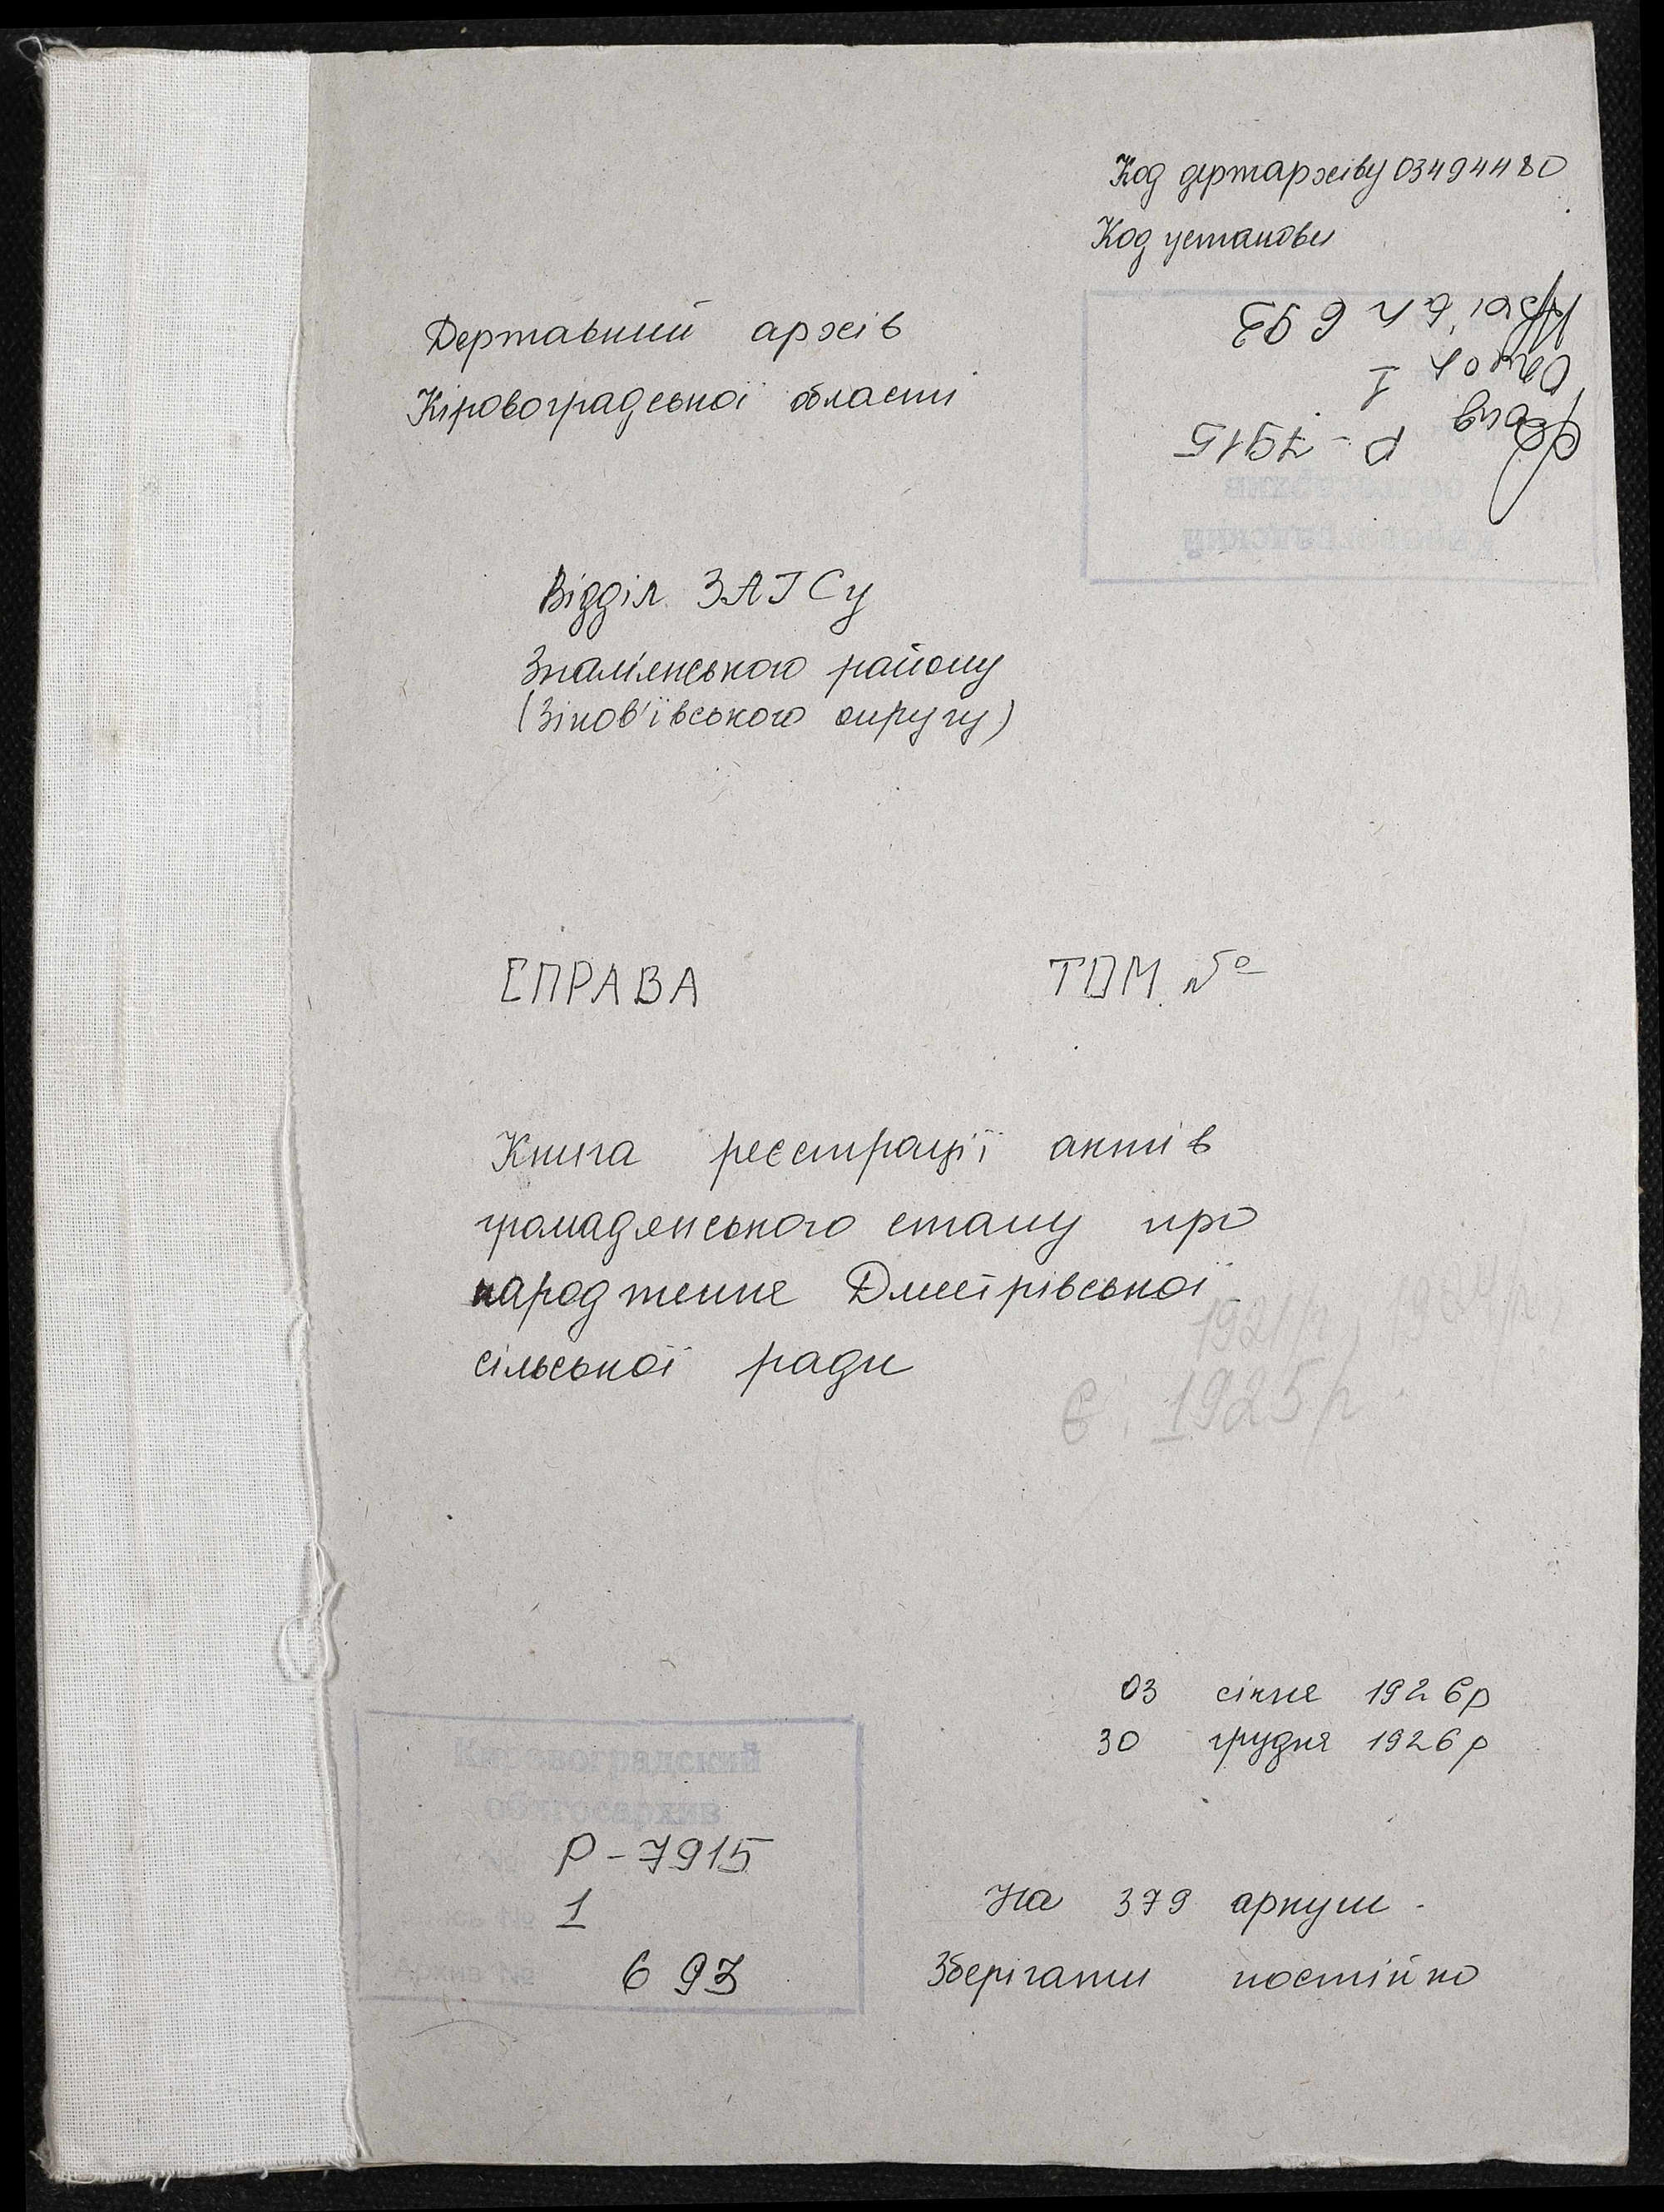 Код держархіву 03494480
Код установи
Державний архів
Кіровоградської області
Фонд Р-7915
Опис 1
693
Відділ ЗАГСу
Знам'янського району
(Зінов'ївського округу)
СПРАВА ТОМ №
Книга реєстрації актів
громадянського стану про
народження Дмитрівської
сільської ради
Є 1925р
03 січня 1926р
30 грудня 1926р
Кировоградский
облгосархив
Р-7915
1
Архив № 693
На 379 аркуш.
Зберігати постійно